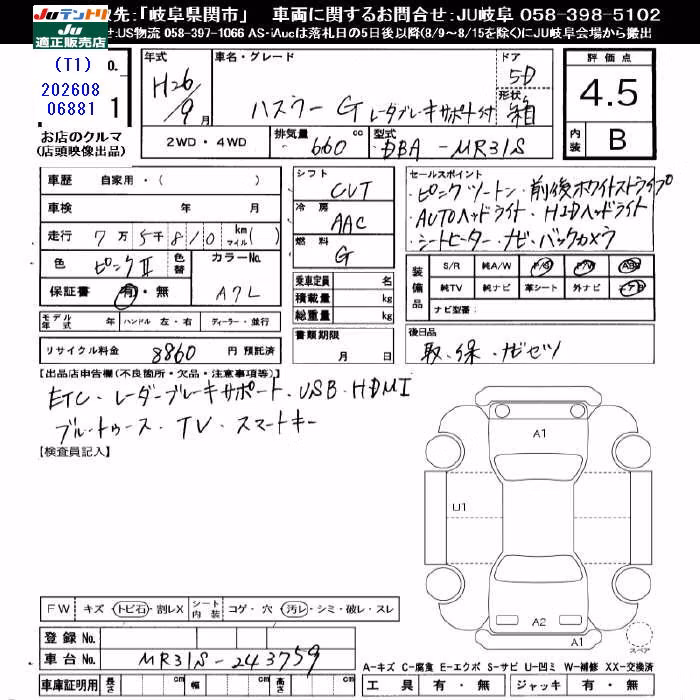 JUテントリ
JU適正販売店
先:「岐阜県関市」 車両に関するお問合せ:JU岐阜 058-398-5102
:US物流 058-397-1066 AS-iAucは落札日の5日後以降(8/9〜8/15を除く)にJU岐阜会場から搬出
(T1) o.
202608
06881 1
お店のクルマ
(店頭映像出品)
年式 H26/9月
車名・グレード ハスラー G レーダブレーキサポート付
ドア 5D
形状 箱
評価点 4.5
内装 B
2WD・4WD 排気量 660 cc 型式 DBA-MR31S
車歴 自家用・( )
車検 年 月
走行 7万5千810 km マイル( )
色 ピンクII 色替 カラーNo. A7L
保証書 有・無
モデル年式 年 ハンドル 左・右 ディーラー・並行
リサイクル料金 8860 円 預託済
シフト CVT
冷房 AAC
燃料 G
乗車定員 名
積載量 kg
総重量 kg
書類期限 月 日
セールスポイント
・ピンクツートン・前後ホワイトストライプ
・AUTOヘッドライト・HIDヘッドライト
・シートヒーター・ナビ・バックカメラ
装備品 S/R 純A/W P/S P/W ABS
純TV 純ナビ 革シート 外ナビ エアB
ナビ型番:
後日品
取・保・ナビセツ
【出品店申告欄(不良箇所・欠品・注意事項等)】
ETC・レーダーブレーキサポート・USB・HDMI
ブルートゥース・TV・スマートキー
【検査員記入】
A1
U1
A2
A1
スペア
FW キズ・トビ石・割レX シート内装 コゲ・穴・汚レ・シミ・破レ・スレ
登録No.
車台No. MR31S-243759
車庫証明用 長さ cm 幅 cm 高さ cm
A-キズ C-腐食 E-エクボ S-サビ U-凹ミ W-補修 XX-交換済
工具 有・無 ジャッキ 有・無